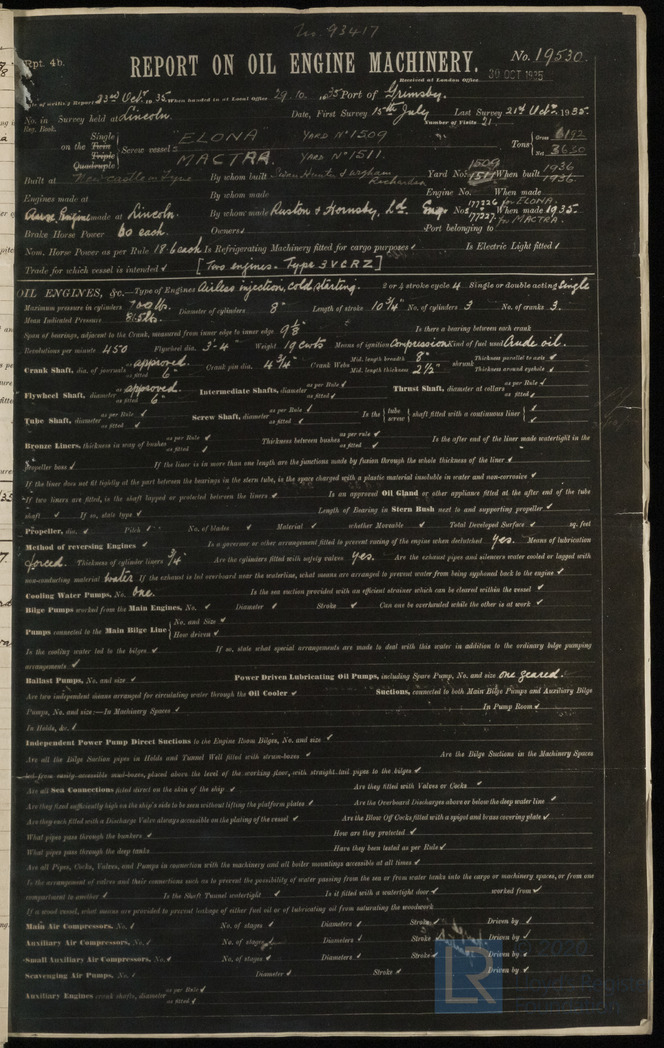 No. 93417
Rpt. 4b.
REPORT ON OIL ENGINE MACHINERY.
No. 19530.
Received at London Office 30 OCT 1935
Date of writing Report 23rd Octr 1935 When handed in at Local Office 29. 10. 1935 Port of Grimsby.
No. in Reg. Book. Survey held at Lincoln. Date, First Survey 15th July Last Survey 21st Octr. 1935.
Number of Visits 21.
on the Single Twin Triple Quadruple Screw vessel "ELONA" YARD No 1509
MACTRA. YARD No 1511.
Tons Gross 6192 Net 3630
Built at Newcastle on Tyne By whom built Swan Hunter & Wigham Richardson Yard No. 1509 1511 When built 1936 1936.
Engines made at By whom made Engine No. When made
made at Lincoln. By whom made Ruston & Hornsby, Ld. Engs No. 177226 for ELONA. 177227 for MACTRA. When made 1935.
Brake Horse Power 60 each. Owners Port belonging to
Nom. Horse Power as per Rule 18.6 each Is Refrigerating Machinery fitted for cargo purposes ✓ Is Electric Light fitted ✓
Trade for which vessel is intended ✓ [Two engines - Type 3VCRZ]
OIL ENGINES, &c.—Type of Engines Airless injection, cold starting. 2 or 4 stroke cycle 4 Single or double acting Single
Maximum pressure in cylinders 700 lbs. Diameter of cylinders 8" Length of stroke 10 3/4" No. of cylinders 3 No. of cranks 3.
Mean Indicated Pressure
Span of bearings, adjacent to the Crank, measured from inner edge to inner edge 9 1/8" Is there a bearing between each crank
Revolutions per minute 450 Flywheel dia. 3'-4" Weight 19 cwts Means of ignition Compression Kind of fuel used Crude oil.
Crank Shaft, dia. of journals as per Rule approved. as fitted 6" Crank pin dia. 4 3/4" Crank Webs Mid. length breadth 8" Mid. length thickness 2 1/2" shrunk Thickness parallel to axis ✓ Thickness around eyehole ✓
Flywheel Shaft, diameter as per Rule approved. as fitted 6" Intermediate Shafts, diameter as per Rule ✓ as fitted ✓ Thrust Shaft, diameter at collars as per Rule ✓ as fitted ✓
Tube Shaft, diameter as per Rule ✓ as fitted ✓ Screw Shaft, diameter as per Rule ✓ as fitted ✓ Is the tube screw shaft fitted with a continuous liner ✓
Bronze Liners, thickness in way of bushes as per Rule ✓ as fitted ✓ Thickness between bushes as per rule ✓ as fitted ✓ Is the after end of the liner made watertight in the
propeller boss ✓ If the liner is in more than one length are the junctions made by fusion through the whole thickness of the liner ✓
If the liner does not fit tightly at the part between the bearings in the stern tube, is the space charged with a plastic material insoluble in water and non-corrosive ✓
If two liners are fitted, is the shaft lapped or protected between the liners ✓ Is an approved Oil Gland or other appliance fitted at the after end of the tube
shaft ✓ If so, state type ✓ Length of Bearing in Stern Bush next to and supporting propeller ✓
Propeller, dia. ✓ Pitch ✓ No. of blades ✓ Material ✓ whether Moveable ✓ Total Developed Surface ✓ sq. feet
Method of reversing Engines ✓ Is a governor or other arrangement fitted to prevent racing of the engine when declutched yes. Means of lubrication
forced. Thickness of cylinder liners 3/4" Are the cylinders fitted with safety valves yes. Are the exhaust pipes and silencers water cooled or lagged with
non-conducting material water If the exhaust is led overboard near the waterline, what means are arranged to prevent water from being syphoned back to the engine ✓
Cooling Water Pumps, No. one. Is the sea suction provided with an efficient strainer which can be cleared within the vessel ✓
Bilge Pumps worked from the Main Engines, No. ✓ Diameter ✓ Stroke ✓ Can one be overhauled while the other is at work ✓
Pumps connected to the Main Bilge Line No. and Size ✓ How driven ✓
Is the cooling water led to the bilges ✓ If so, state what special arrangements are made to deal with this water in addition to the ordinary bilge pumping
arrangements ✓
Ballast Pumps, No. and size ✓ Power Driven Lubricating Oil Pumps, including Spare Pump, No. and size one geared.
Are two independent means arranged for circulating water through the Oil Cooler ✓ Suctions, connected to both Main Bilge Pumps and Auxiliary Bilge
Pumps, No. and size:—In Machinery Spaces ✓ In Pump Room ✓
In Holds, &c. ✓
Independent Power Pump Direct Suctions to the Engine Room Bilges, No. and size ✓
Are all the Bilge Suction pipes in Holds and Tunnel Well fitted with strum-boxes ✓ Are the Bilge Suctions in the Machinery Spaces
led from easily accessible mud-boxes, placed above the level of the working floor, with straight tail pipes to the bilges ✓
Are all Sea Connections fitted direct on the skin of the ship ✓ Are they fitted with Valves or Cocks ✓
Are they fixed sufficiently high on the ship's side to be seen without lifting the platform plates ✓ Are the Overboard Discharges above or below the deep water line ✓
Are they each fitted with a Discharge Valve always accessible on the plating of the vessel ✓ Are the Blow Off Cocks fitted with a spigot and brass covering plate ✓
What pipes pass through the bunkers ✓ How are they protected ✓
What pipes pass through the deep tanks Have they been tested as per Rule ✓
Are all Pipes, Cocks, Valves, and Pumps in connection with the machinery and all boiler mountings accessible at all times ✓
Is the arrangement of valves and their connections such as to prevent the possibility of water passing from the sea or from water tanks into the cargo or machinery spaces, or from one
compartment to another ✓ Is the Shaft Tunnel watertight ✓ Is it fitted with a watertight door ✓ worked from ✓
If a wood vessel, what means are provided to prevent leakage of either fuel oil or of lubricating oil from saturating the woodwork
Main Air Compressors, No. ✓ No. of stages ✓ Diameters ✓ Stroke ✓ Driven by ✓
Auxiliary Air Compressors, No. ✓ No. of stages ✓ Diameters ✓ Stroke ✓ Driven by ✓
Small Auxiliary Air Compressors, No. ✓ No. of stages ✓ Diameters ✓ Stroke ✓ Driven by ✓
Scavenging Air Pumps, No. ✓ Diameter ✓ Stroke ✓ Driven by ✓
Auxiliary Engines crank shafts, diameter as per Rule ✓ as fitted ✓
LR
2020
Lloyd's Register